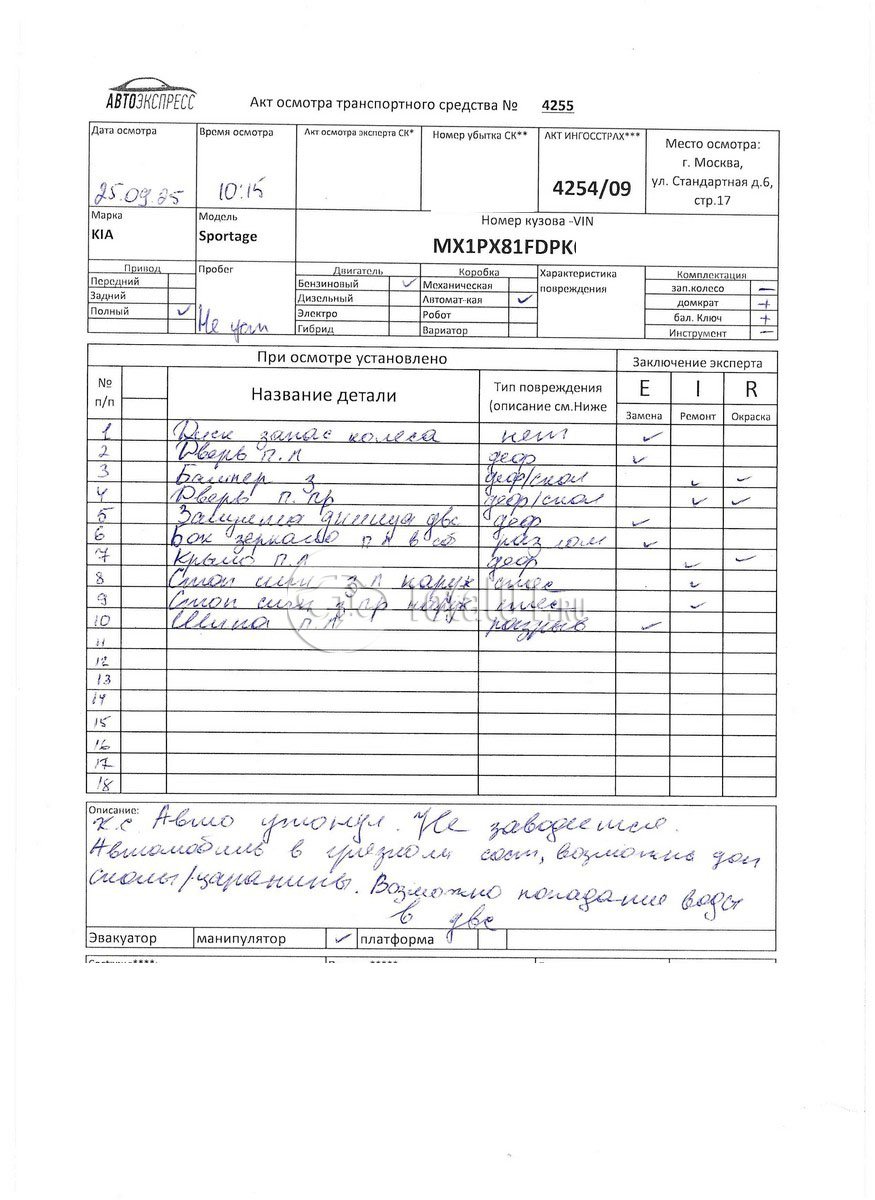 АВТОЭКСПРЕСС
Акт осмотра транспортного средства № 4255
Дата осмотра Время осмотра Акт осмотра эксперта СК* Номер убытка СК** АКТ ИНГОССТРАХ*** Место осмотра:
г. Москва,
25.09.25 10:15 4254/09 ул. Стандартная д.6,
стр.17
Марка Модель Номер кузова -VIN
KIA Sportage MX1PX81FDPK
Привод Пробег Двигатель Коробка Характеристика Комплектация
Передний Бензиновый ✓ Механическая повреждения зап.колесо –
Задний Дизельный Автомат-кая ✓ домкрат +
Полный ✓ Не уст Электро Робот бал. Ключ +
Гибрид Вариатор Инструмент –
При осмотре установлено Заключение эксперта
№ п/п Название детали Тип повреждения (описание см.Ниже E I R
Замена Ремонт Окраска
1 Диск запас колеса нет ✓
2 Дверь п.л деф ✓
3 Бампер з деф/скол ✓ ✓
4 Дверь п. пр деф/скол ✓ ✓
5 Защита днища двс деф ✓
6 Бок зеркало п л в сб разлом ✓
7 Крыло п.л деф ✓ ✓
8 Стоп сигн з л наруж ✓
9 Стоп сигн з пр наруж ✓
10 Шина п л разрыв ✓
11
12
13
14
15
16
17
18
Описание:
к.с. Авто утонул. Не заводится.
Автомобиль в грязном сост, возможны доп
сколы/царапины. Возможно попадание воды
в двс
Эвакуатор манипулятор ✓ платформа